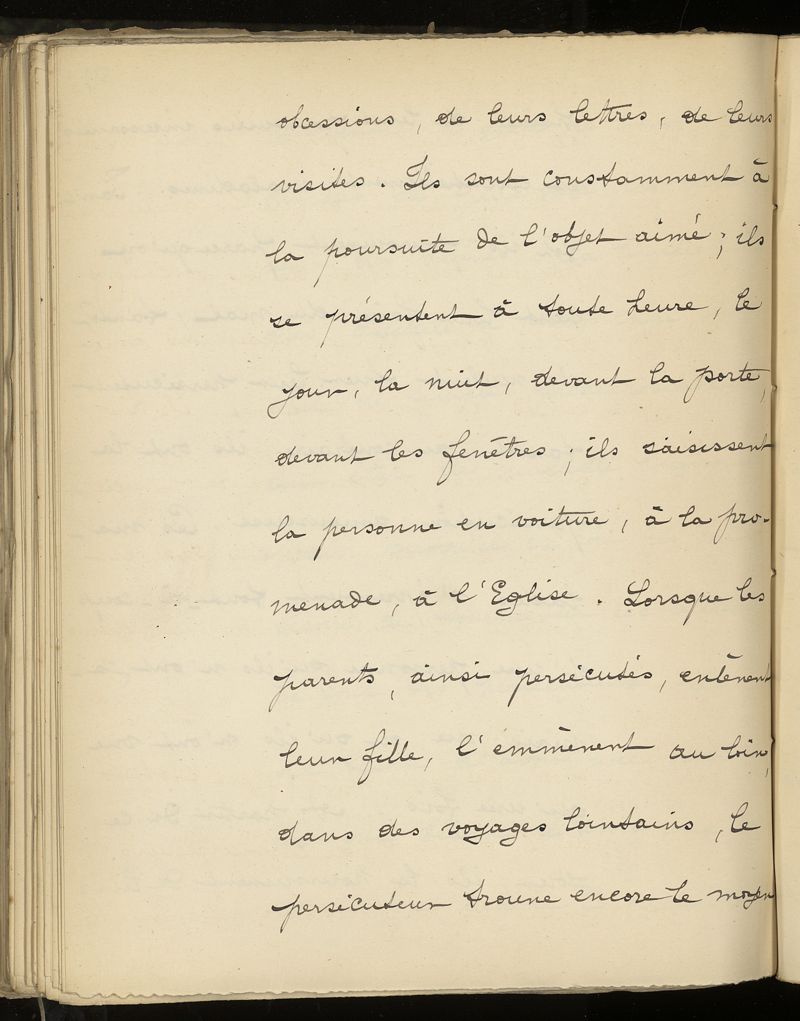 obcessions, de leurs lettres, de leurs
visites. Ils sont constamment à
la poursuite de l'objet aimé; ils
se présentent à toute heure, le
jour, la nuit, devant la porte,
devant les fenêtres; ils saisissent
la personne en voiture, à la pro-
menade, à l'Eglise. Lorsque les
parents, ainsi persécutés, enlèvent
leur fille, l'emmènent au loin,
dans des voyages lointains, le
persécuteur trouve encore le moyen